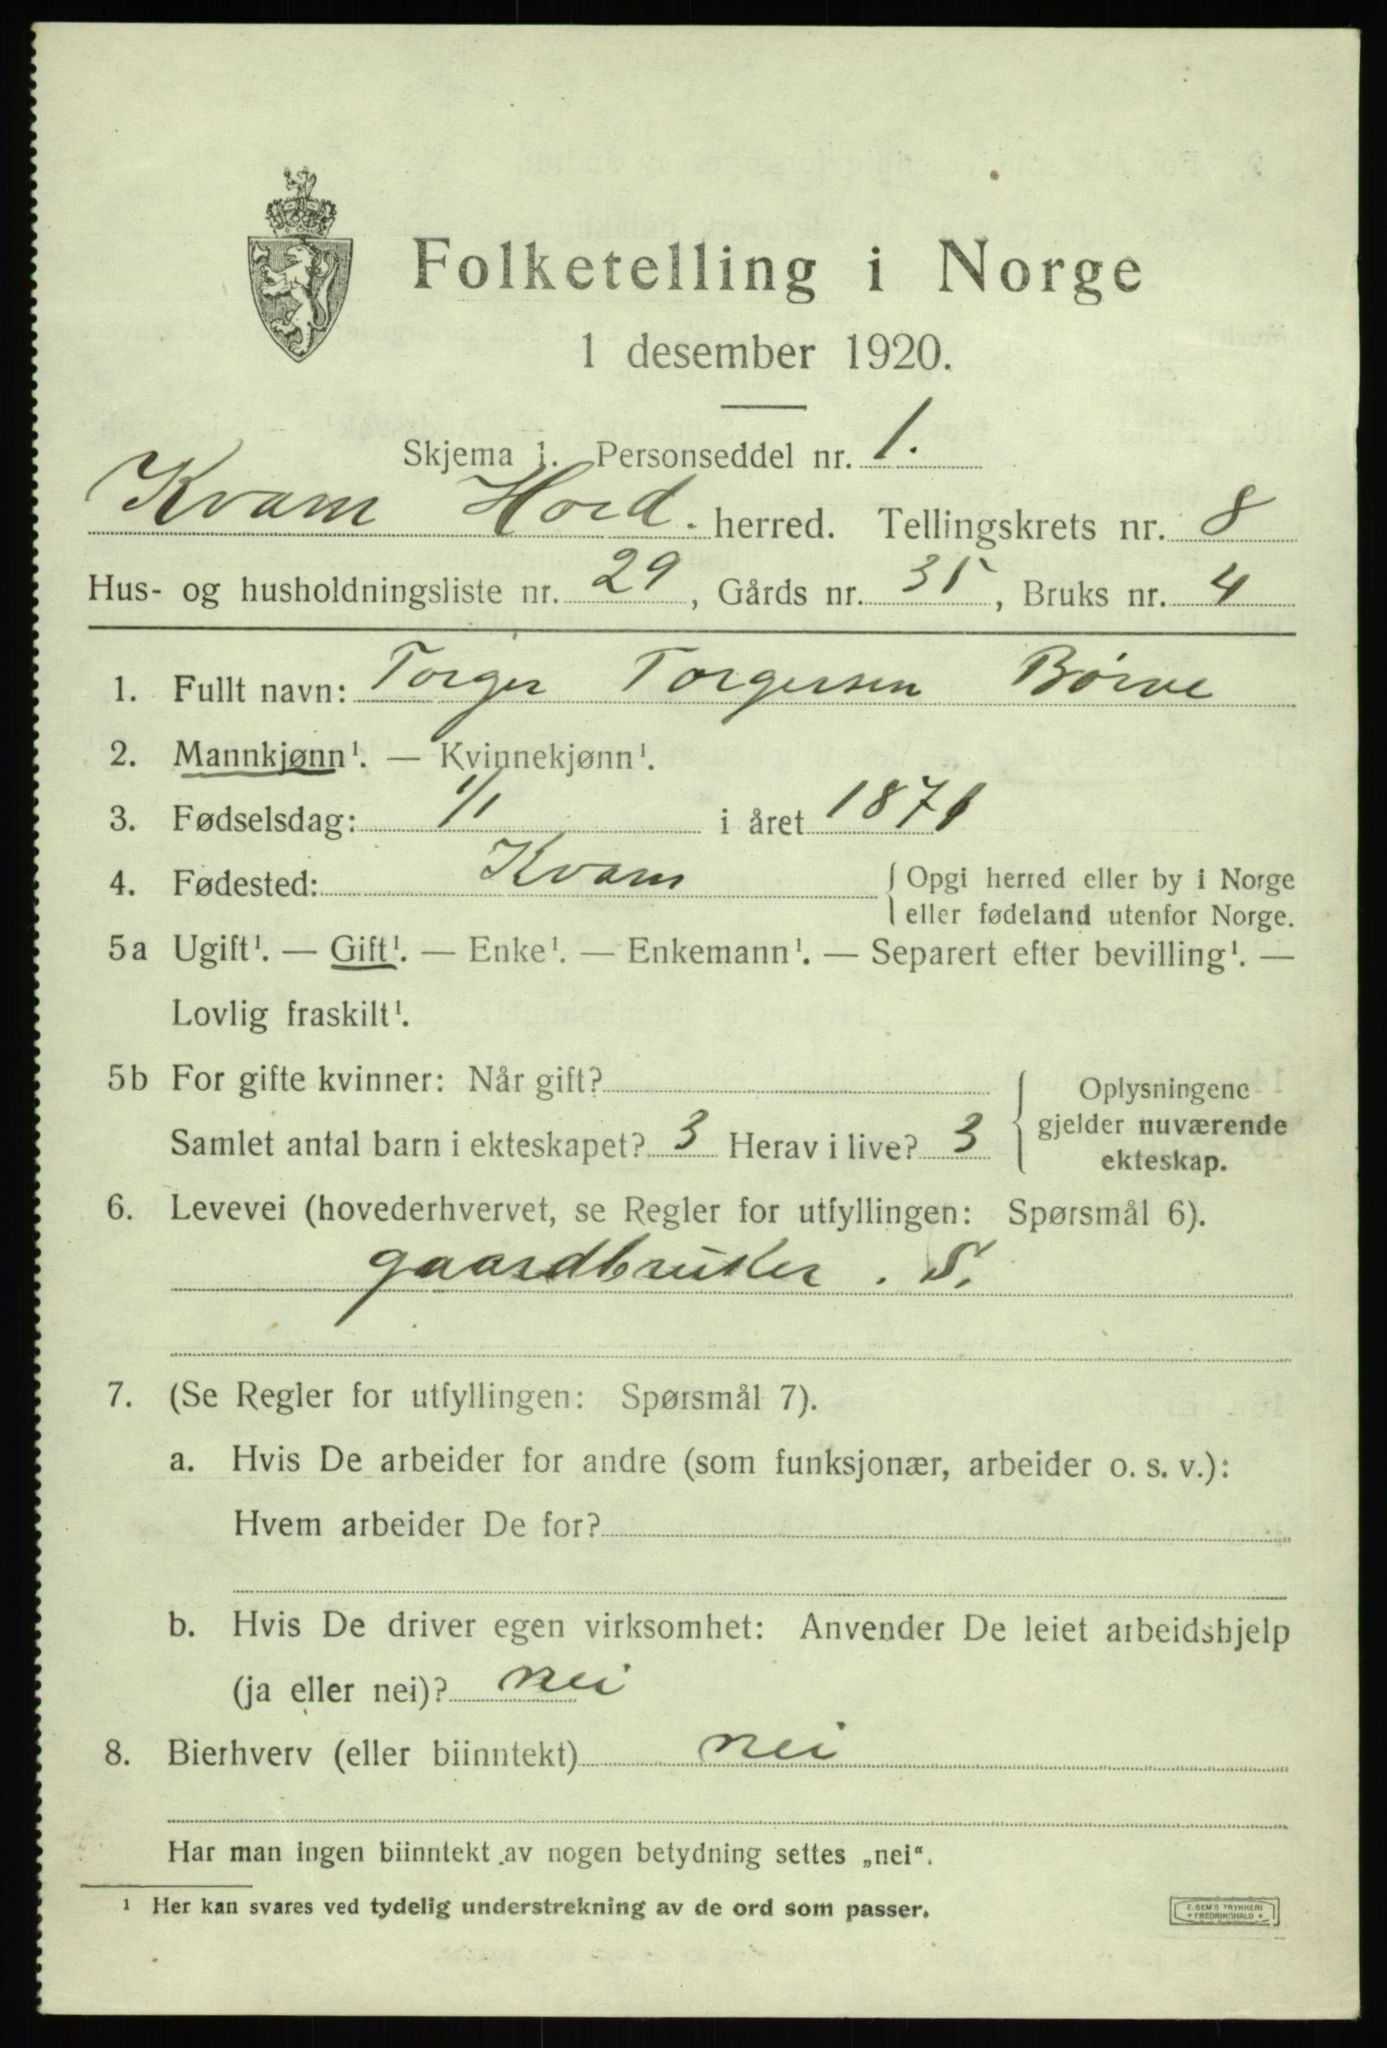 Folketelling i Norge
1 desember 1920.
Skjema 1. Personseddel nr. 1.
Kvam Hord. herred. Tellingskrets nr. 8
Hus- og husholdningsliste nr. 29, Gårds nr. 35, Bruks nr. 4
1. Fullt navn: Torger Torgersen Børve
2. Mannkjønn¹. — Kvinnekjønn¹.
3. Fødselsdag: 1/1 i året 1871
4. Fødested: Kvam { Opgi herred eller by i Norge
eller fødeland utenfor Norge.
5a Ugift¹. — Gift¹. — Enke¹. — Enkemann¹. — Separert efter bevilling¹. —
Lovlig fraskilt¹.
5b For gifte kvinner: Når gift?
Samlet antal barn i ekteskapet? 3 Herav i live? 3
Oplysningene
gjelder nuværende
ekteskap.
6. Levevei (hovederhvervet, se Regler for utfyllingen: Spørsmål 6).
gaardbruker. S.
7. (Se Regler for utfyllingen: Spørsmål 7).
a. Hvis De arbeider for andre (som funksjonær, arbeider o. s. v.):
Hvem arbeider De for?
b. Hvis De driver egen virksomhet: Anvender De leiet arbeidshjelp
(ja eller nei)? nei
8. Bierhverv (eller biinntekt) nei
Har man ingen biinntekt av nogen betydning settes „nei“.
¹ Her kan svares ved tydelig understrekning av de ord som passer.
E. SEM'S TRYKKERI
* FREDRIKSHALD *